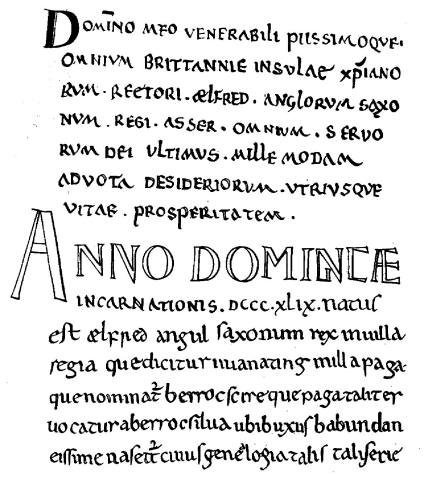 DOMINO MEO VENERABILI PIISSIMOQUE.
OMNIVM BRITTANNIE INSVLAE XPIANO
RVM. RECTORI. ÆLFRED. ANGLORVM SAXO
NVM. REGI. ASSER. OMNIUM. SERVO
RVM DEI ULTIMUS. MILLE MODAM
ADVOTA DESIDERIORUM. VTRIVSQVE
VITAE. PROSPERITATEM.
ANNO DOMINICÆ
INCARNATIONIS. DCCC.XLIX. natus
est ælfred angul saxonum rex in uilla
regia que dicitur uuanating in illa paga
que nominat berrocscire que paga taliter
uocatur a berroc silua ubi buxus habundan
tissime nascit cuius genelogia talis tali serie